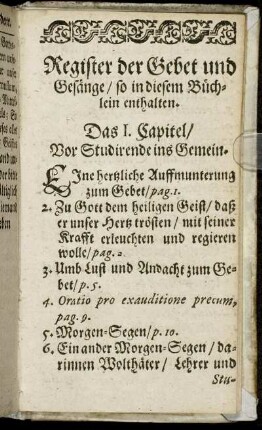 Register der Gebet und
Gesänge / so in diesem Büch-
lein enthalten.
Das I. Capitel /
Vor Studirende ins Gemein.
EIne hertzliche Auffmunterung
zum Gebet / pag. 1.
2. Zu Gott dem heiligen Geist / daß
er unser Hertz trösten / mit seiner
Krafft erleuchten und regieren
wolle / pag. 2.
3. Umb Lust und Andacht zum Ge-
bet / p. 5.
4. Oratio pro exauditione precum,
pag. 9.
5. Morgen-Segen / p. 10.
6. Ein ander Morgen-Segen / da-
rinnen Wolthäter / Lehrer und
Stu-